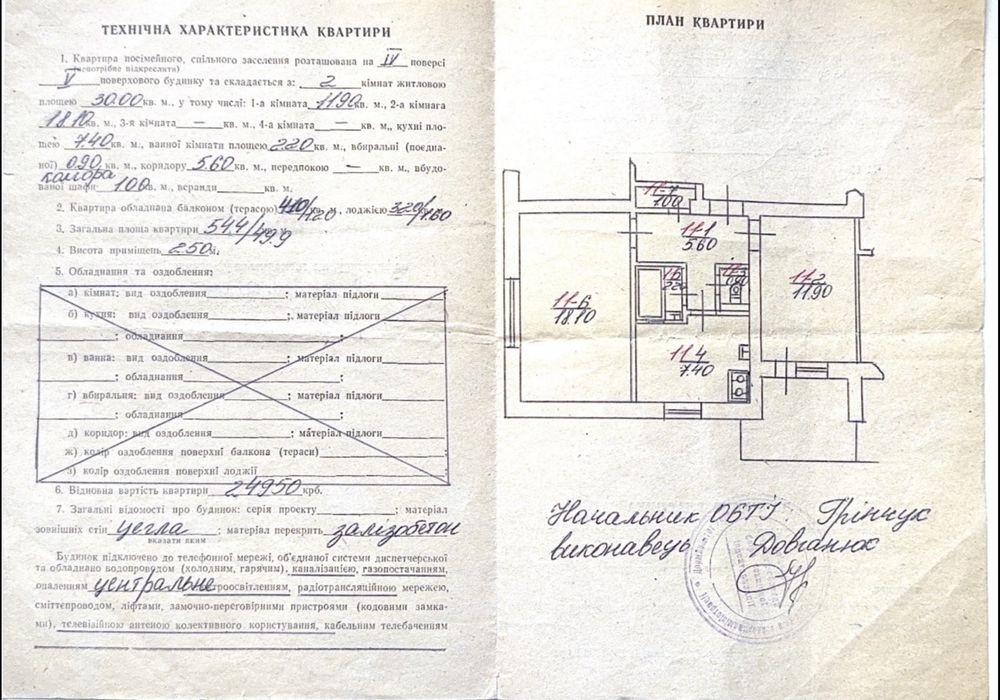 ТЕХНІЧНА ХАРАКТЕРИСТИКА КВАРТИРИ
1. Квартира посімейного, спільного заселення розташована на IV поверсі
(непотрібне відкреслити)
V поверхового будинку та складається з: 2 кімнат житловою
площею 30.00 кв. м., у тому числі: 1-а кімната 11.90 кв. м., 2-а кімнага
18.10 кв. м., 3-я кімната — кв. м., 4-а кімната — кв. м., кухні пло-
щею 7.40 кв. м., ванної кімнати площею 2.20 кв. м., вбиральні (поєдна-
ної) 0.90 кв. м., коридору 5.60 кв. м., передпокою — кв. м., вбудо-
комора
ваної шафи 1.00 кв. м., веранди кв. м.
2. Квартира обладнана балконом (терасою) 4.10/1.20 кв. м., лоджією 3.20/1.60
3. Загальна площа квартири 54.4/49.9
4. Висота приміщень 2.50 м.
5. Обладнання та оздоблення:
а) кімнат: вид оздоблення ; матеріал підлоги
б) кухня: вид оздоблення ; матеріал підлоги
; обладнання ;
в) ванна: вид оздоблення ; матеріал підлоги
; обладнання ;
г) вбиральня: вид оздоблення ; матеріал підлоги
; обладнання ;
д) коридор: вид оздоблення ; матеріал підлоги
ж) колір оздоблення поверхні балкона (тераси) ;
з) колір оздоблення поверхні лоджії
6. Відновна вартість квартири 24950 крб.
7. Загальні відомості про будинок: серія проекту ; матеріал
зовнішніх стін цегла ; матеріал перекрить залізобетон
вказати яким
Будинок підключено до телефонної мережі, об'єднаної системи диспетчерської
та обладнано водопроводом (холодним, гарячим), каналізацією, газопостачанням,
опаленням центральне троосвітленням, радіотрансляційною мережею,
сміттєпроводом, ліфтами, замочно-переговірними пристроями (кодовими замка-
ми), телевізійною антеною колективного користування, кабельним телебаченням
ПЛАН КВАРТИРИ
11-7
1.00
11-1
5.60
11-2
11.90
11-6
18.10
11-4
7.40
Начальник ОБТІ Грінчук
виконавець Довганюк